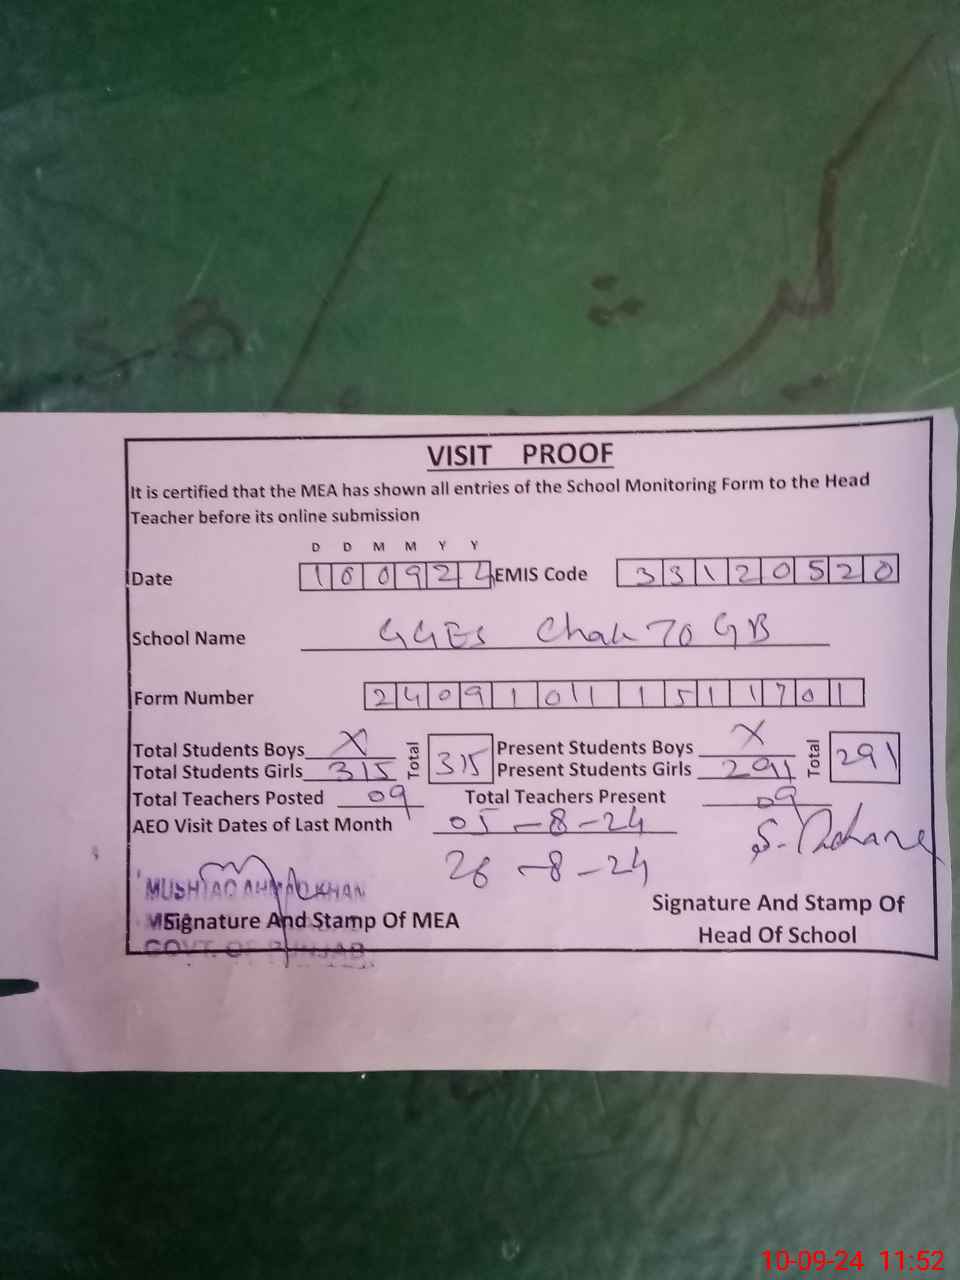 VISIT PROOF
It is certified that the MEA has shown all entries of the School Monitoring Form to the Head
Teacher before its online submission
D D M M Y Y
Date 100924 EMIS Code 33120520
School Name GGES Chak 70 GB
Form Number 240910111511701
Total Students Boys X Total 315 Present Students Boys X Total 291
Total Students Girls 315 Present Students Girls 291
Total Teachers Posted 09 Total Teachers Present 09
AEO Visit Dates of Last Month 05-8-24
26-8-24
MUSHTAQ AHMAD KHAN
Signature And Stamp Of MEA
GOVT. OF PUNJAB
Signature And Stamp Of
Head Of School
10-09-24 11:52